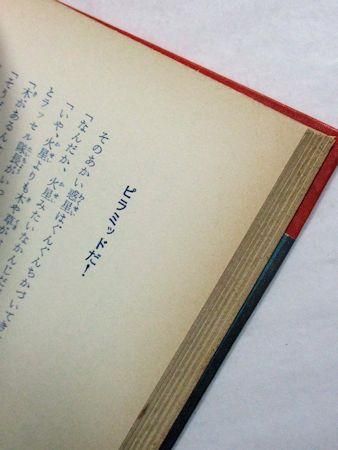 ピラミッドだ!
そのあかい惑星はぐんぐんちかづいてき
「なんだか、火星みたいなかんじだ
「いや、火星よりも木や草が
とラッセル隊長がいっ
「木があるん
「そり